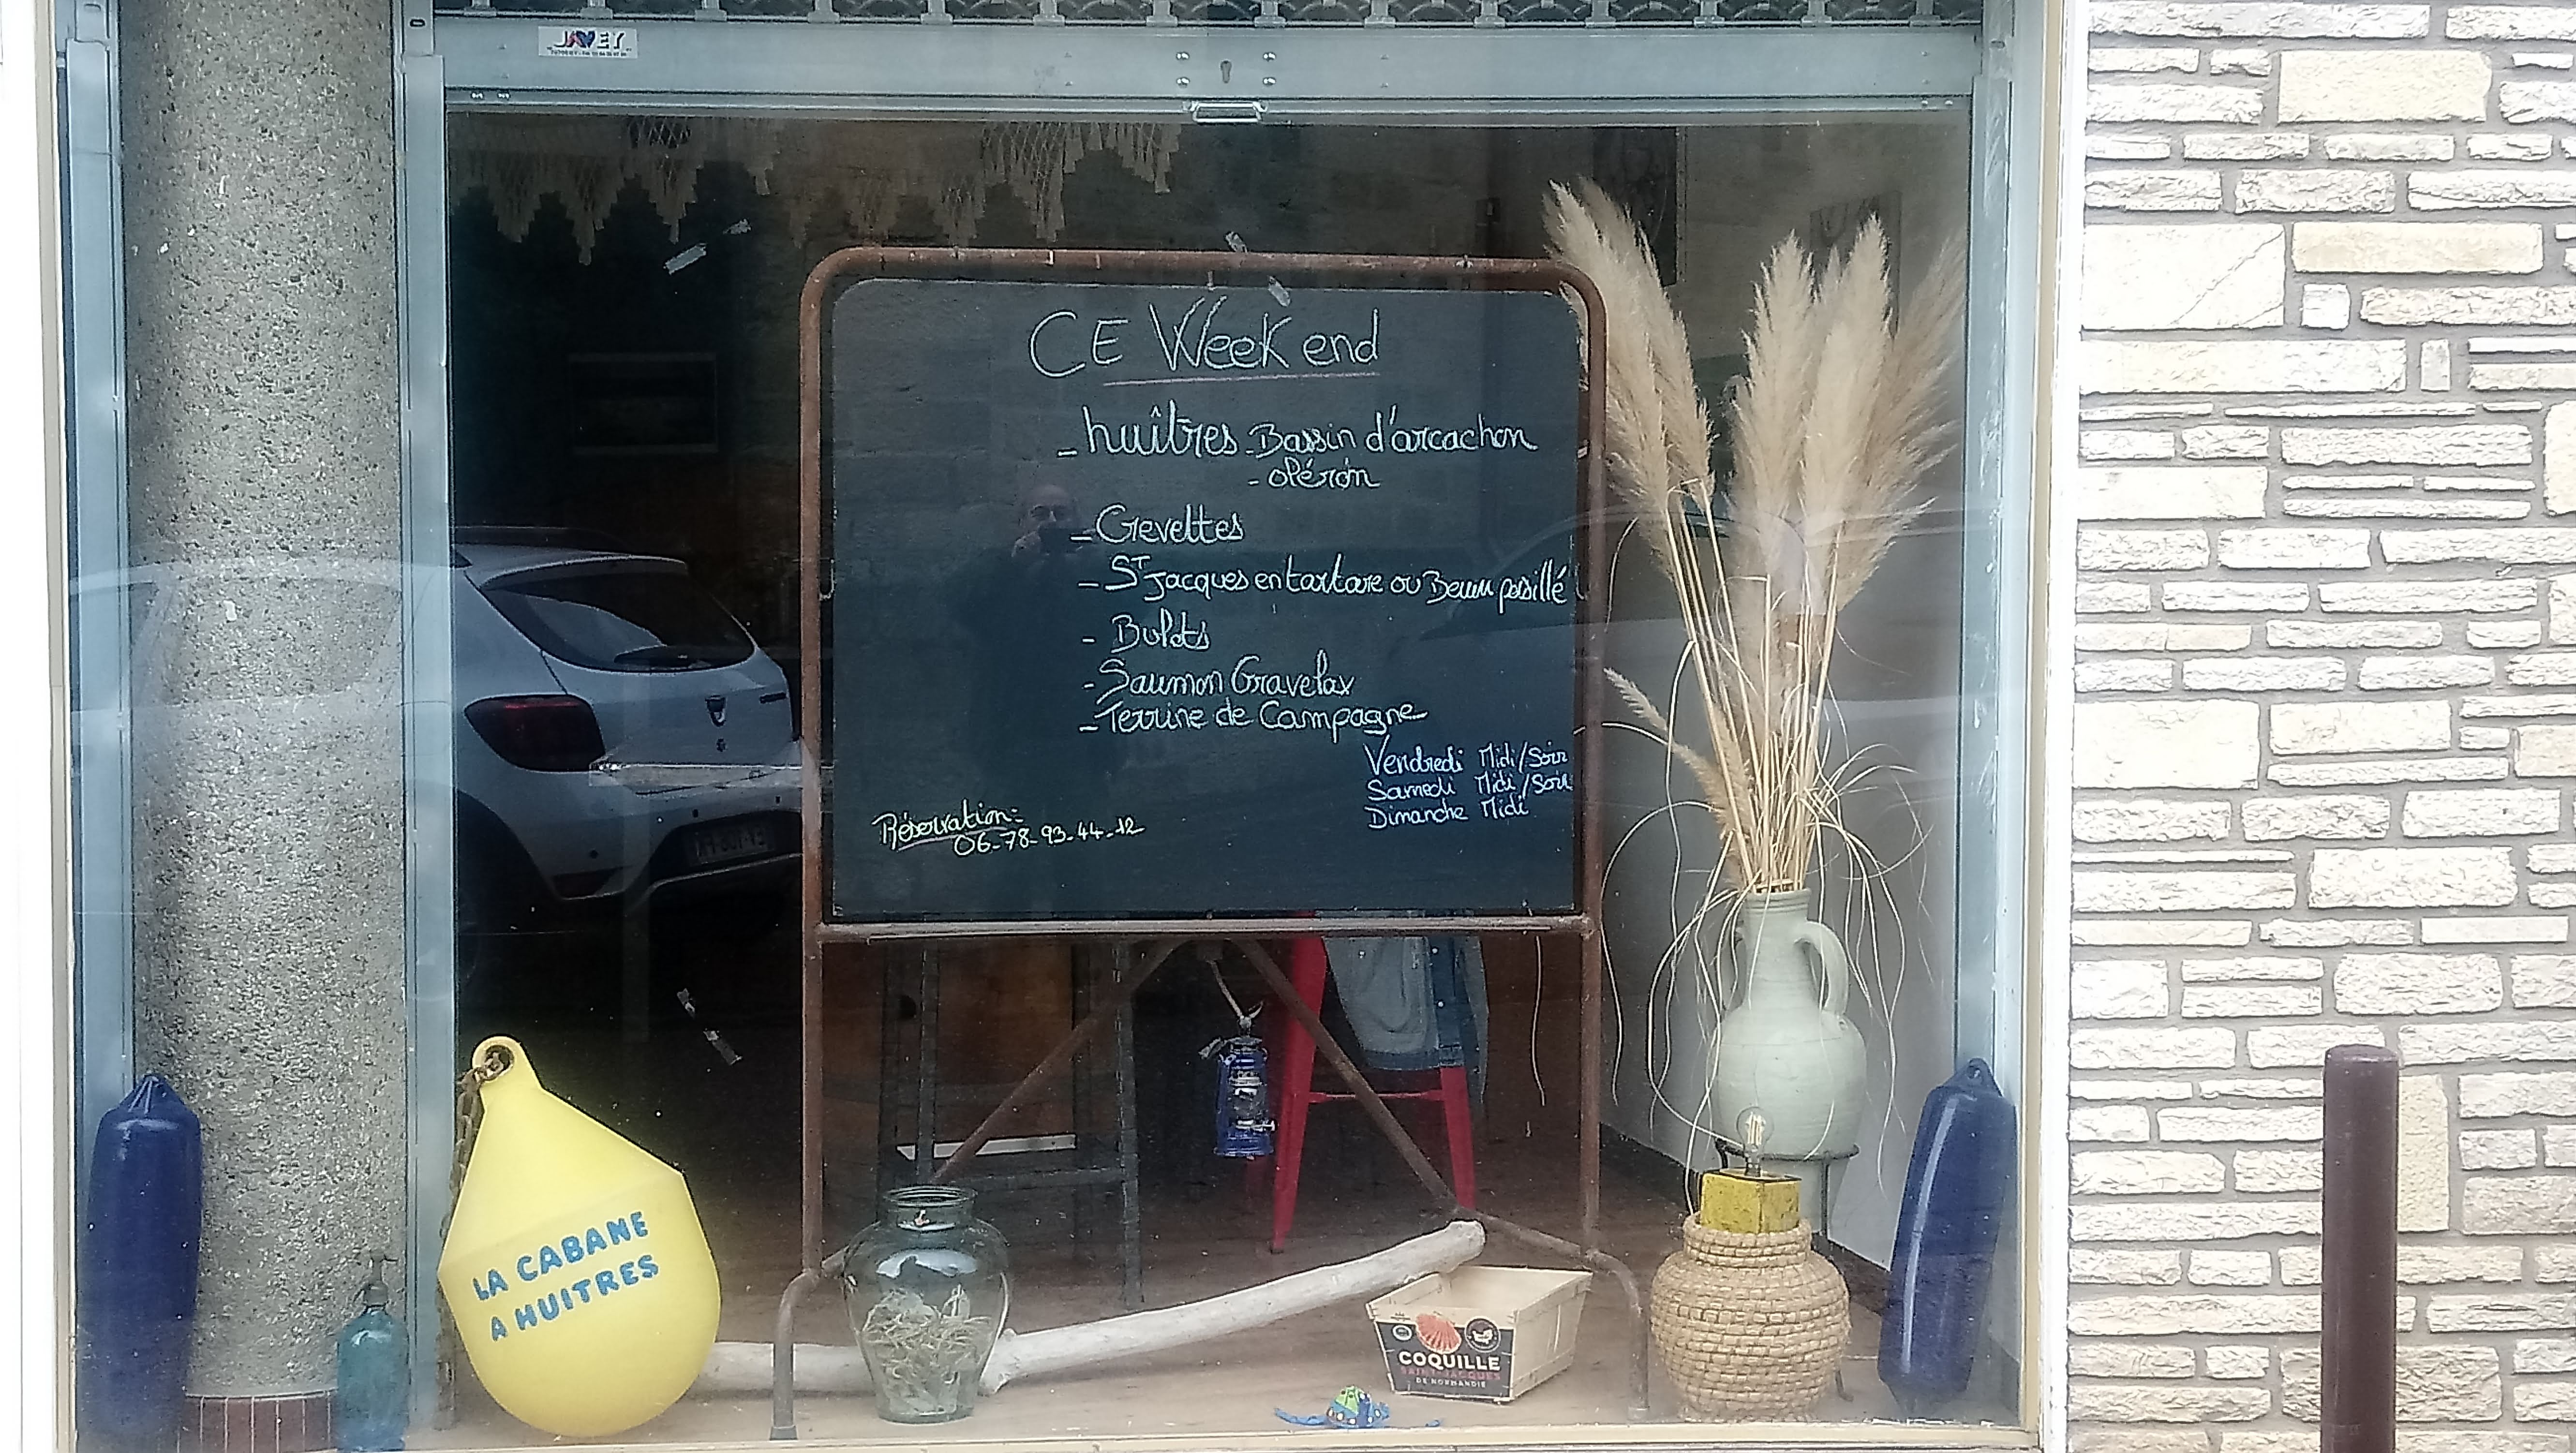 JAVEY
CE Week end
- huîtres - Bassin d'arcachon
- oléron
- Crevettes
- ST Jacques en tartare ou Beurre persillé
- Bulots
- Saumon Gravelax
- Terrine de Campagne
Vendredi Midi/Soir
Samedi Midi/Soir
Dimanche Midi
Réservation:
06-78-93-44-12
LA CABANE
A HUITRES
COQUILLE
SAINT-JACQUES
DE NORMANDIE